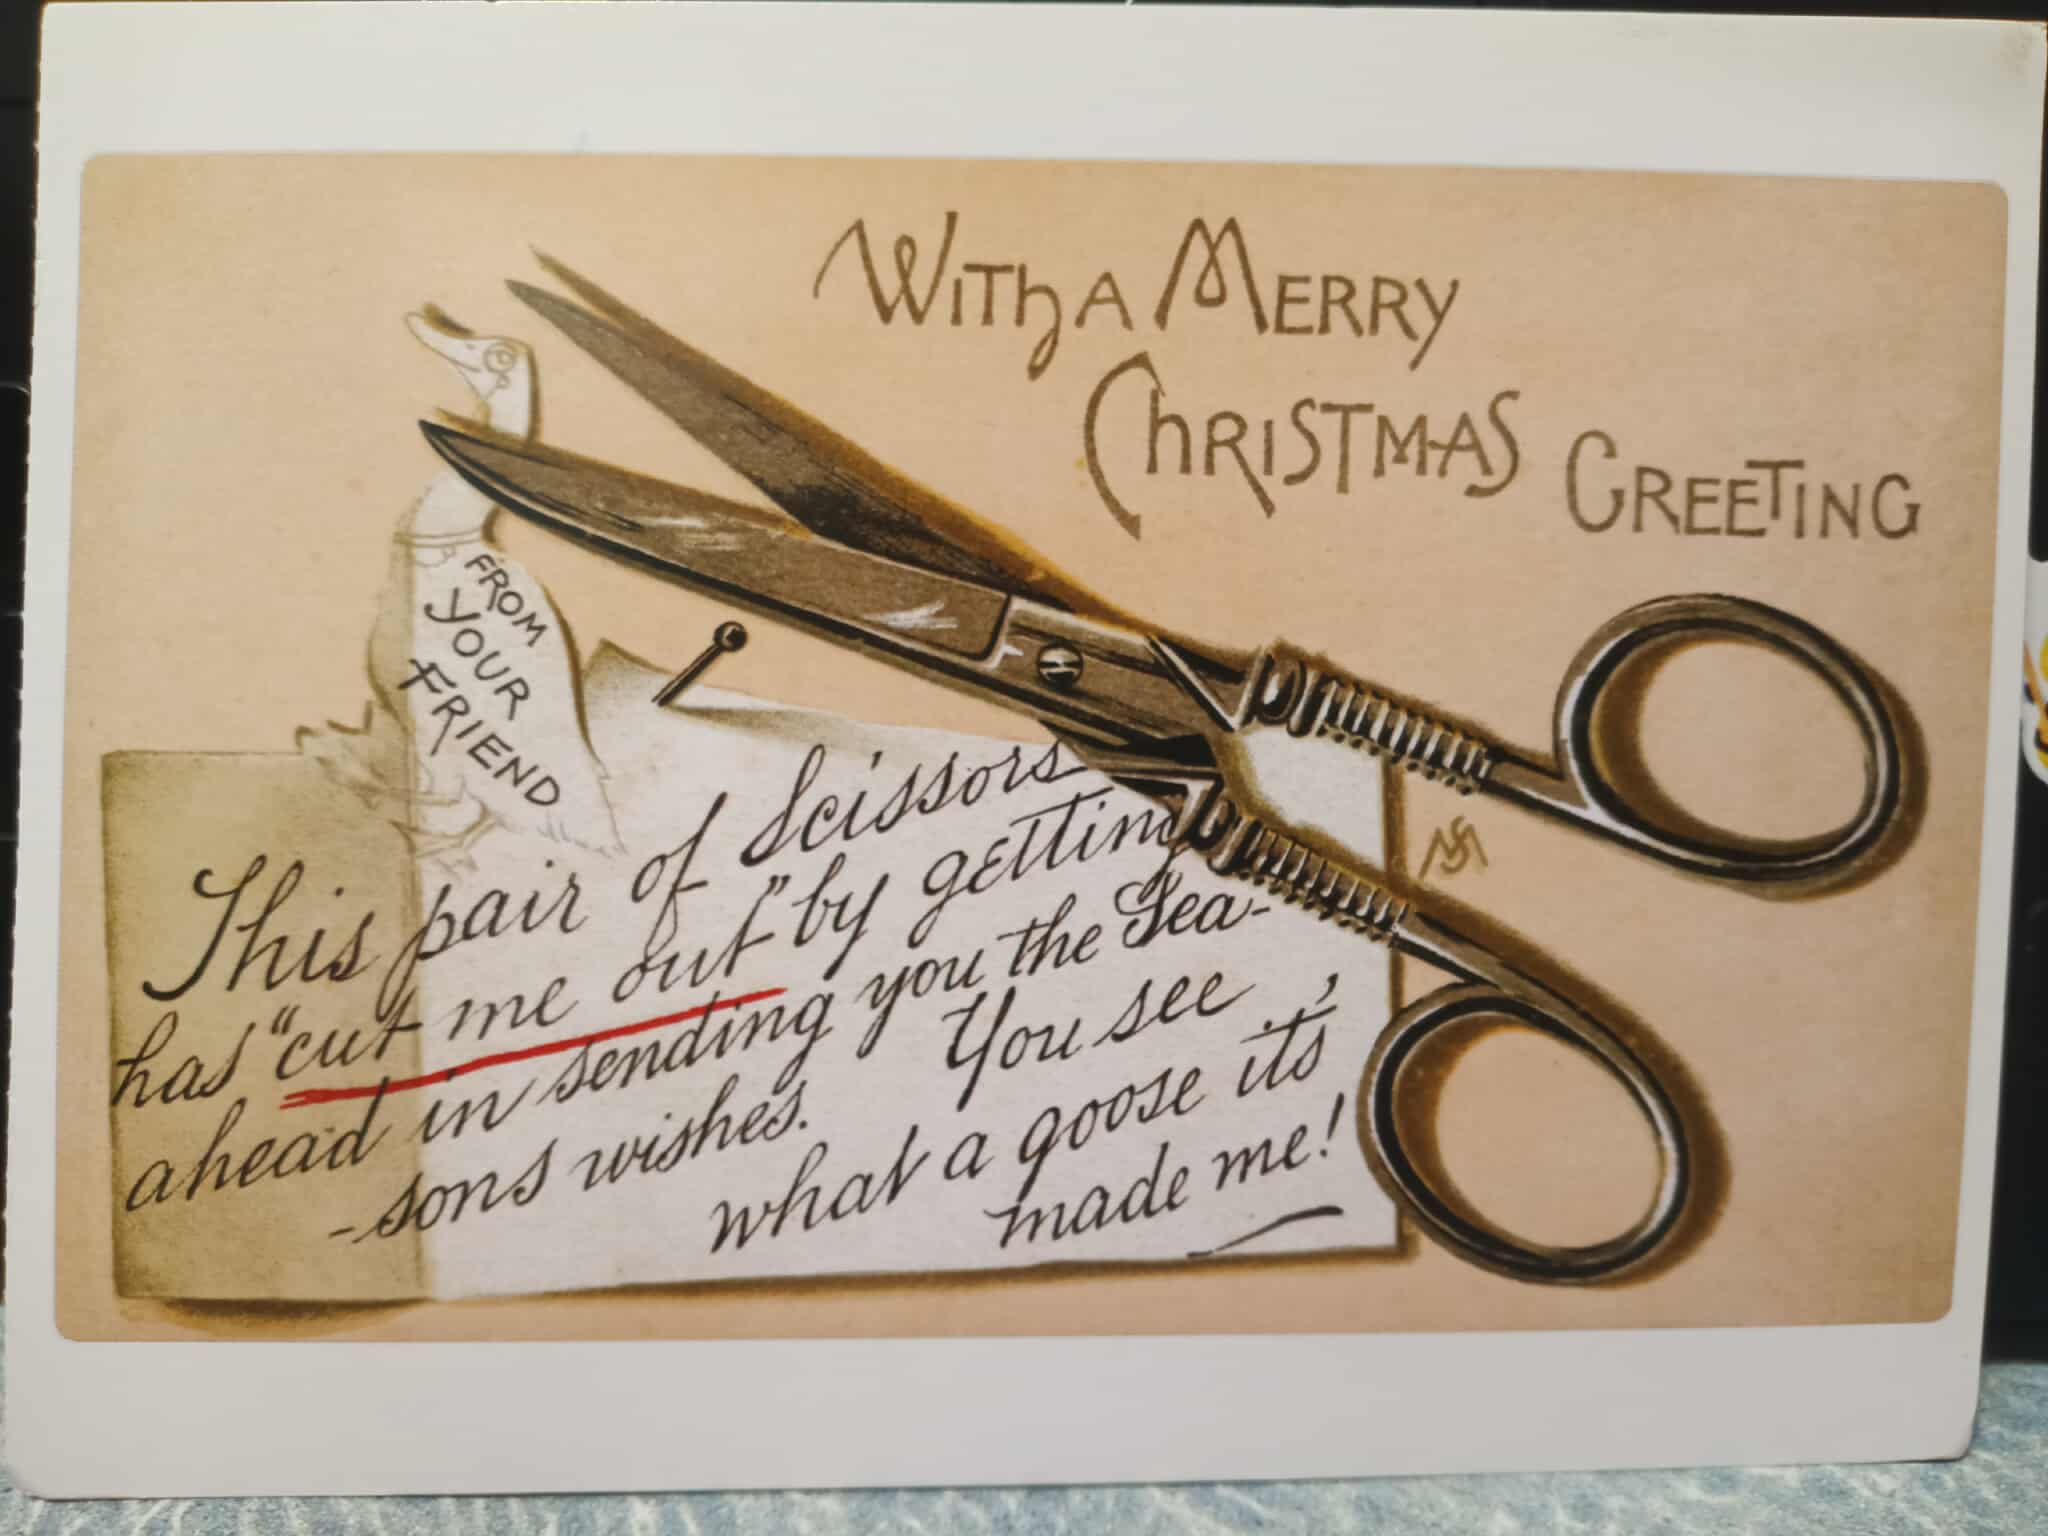 WITH A MERRY
CHRISTMAS GREETING
FROM
YOUR
FRIEND
This pair of Scissors
has "cut me out" by getting
ahead in sending you the Sea-
-sons wishes. You see
what a goose it's
made me!